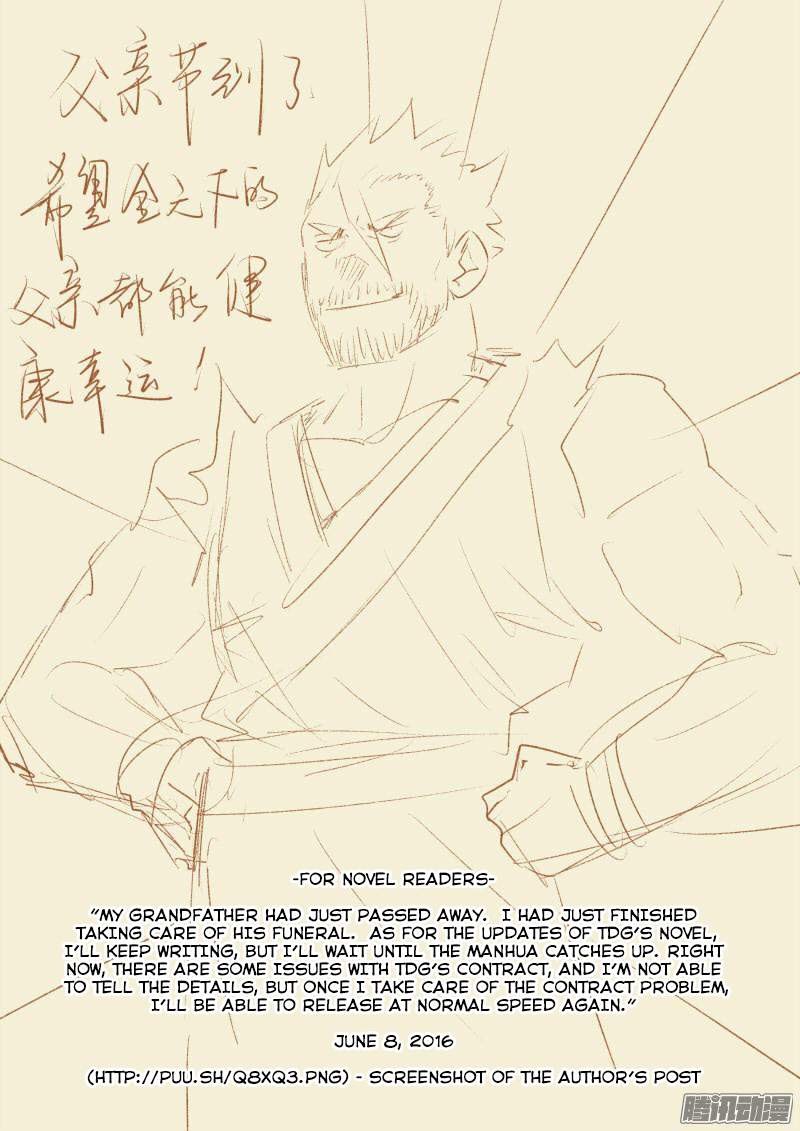 父亲节到了
希望全天下的
父亲都能健
康幸运！
-FOR NOVEL READERS-
"MY GRANDFATHER HAD JUST PASSED AWAY. I HAD JUST FINISHED
TAKING CARE OF HIS FUNERAL. AS FOR THE UPDATES OF TDG'S NOVEL,
I'LL KEEP WRITING, BUT I'LL WAIT UNTIL THE MANHUA CATCHES UP. RIGHT
NOW, THERE ARE SOME ISSUES WITH TDG'S CONTRACT, AND I'M NOT ABLE
TO TELL THE DETAILS, BUT ONCE I TAKE CARE OF THE CONTRACT PROBLEM,
I'LL BE ABLE TO RELEASE AT NORMAL SPEED AGAIN."
JUNE 8, 2016
(HTTP://PUU.SH/Q8XQ3.PNG) - SCREENSHOT OF THE AUTHOR'S POST
腾讯动漫